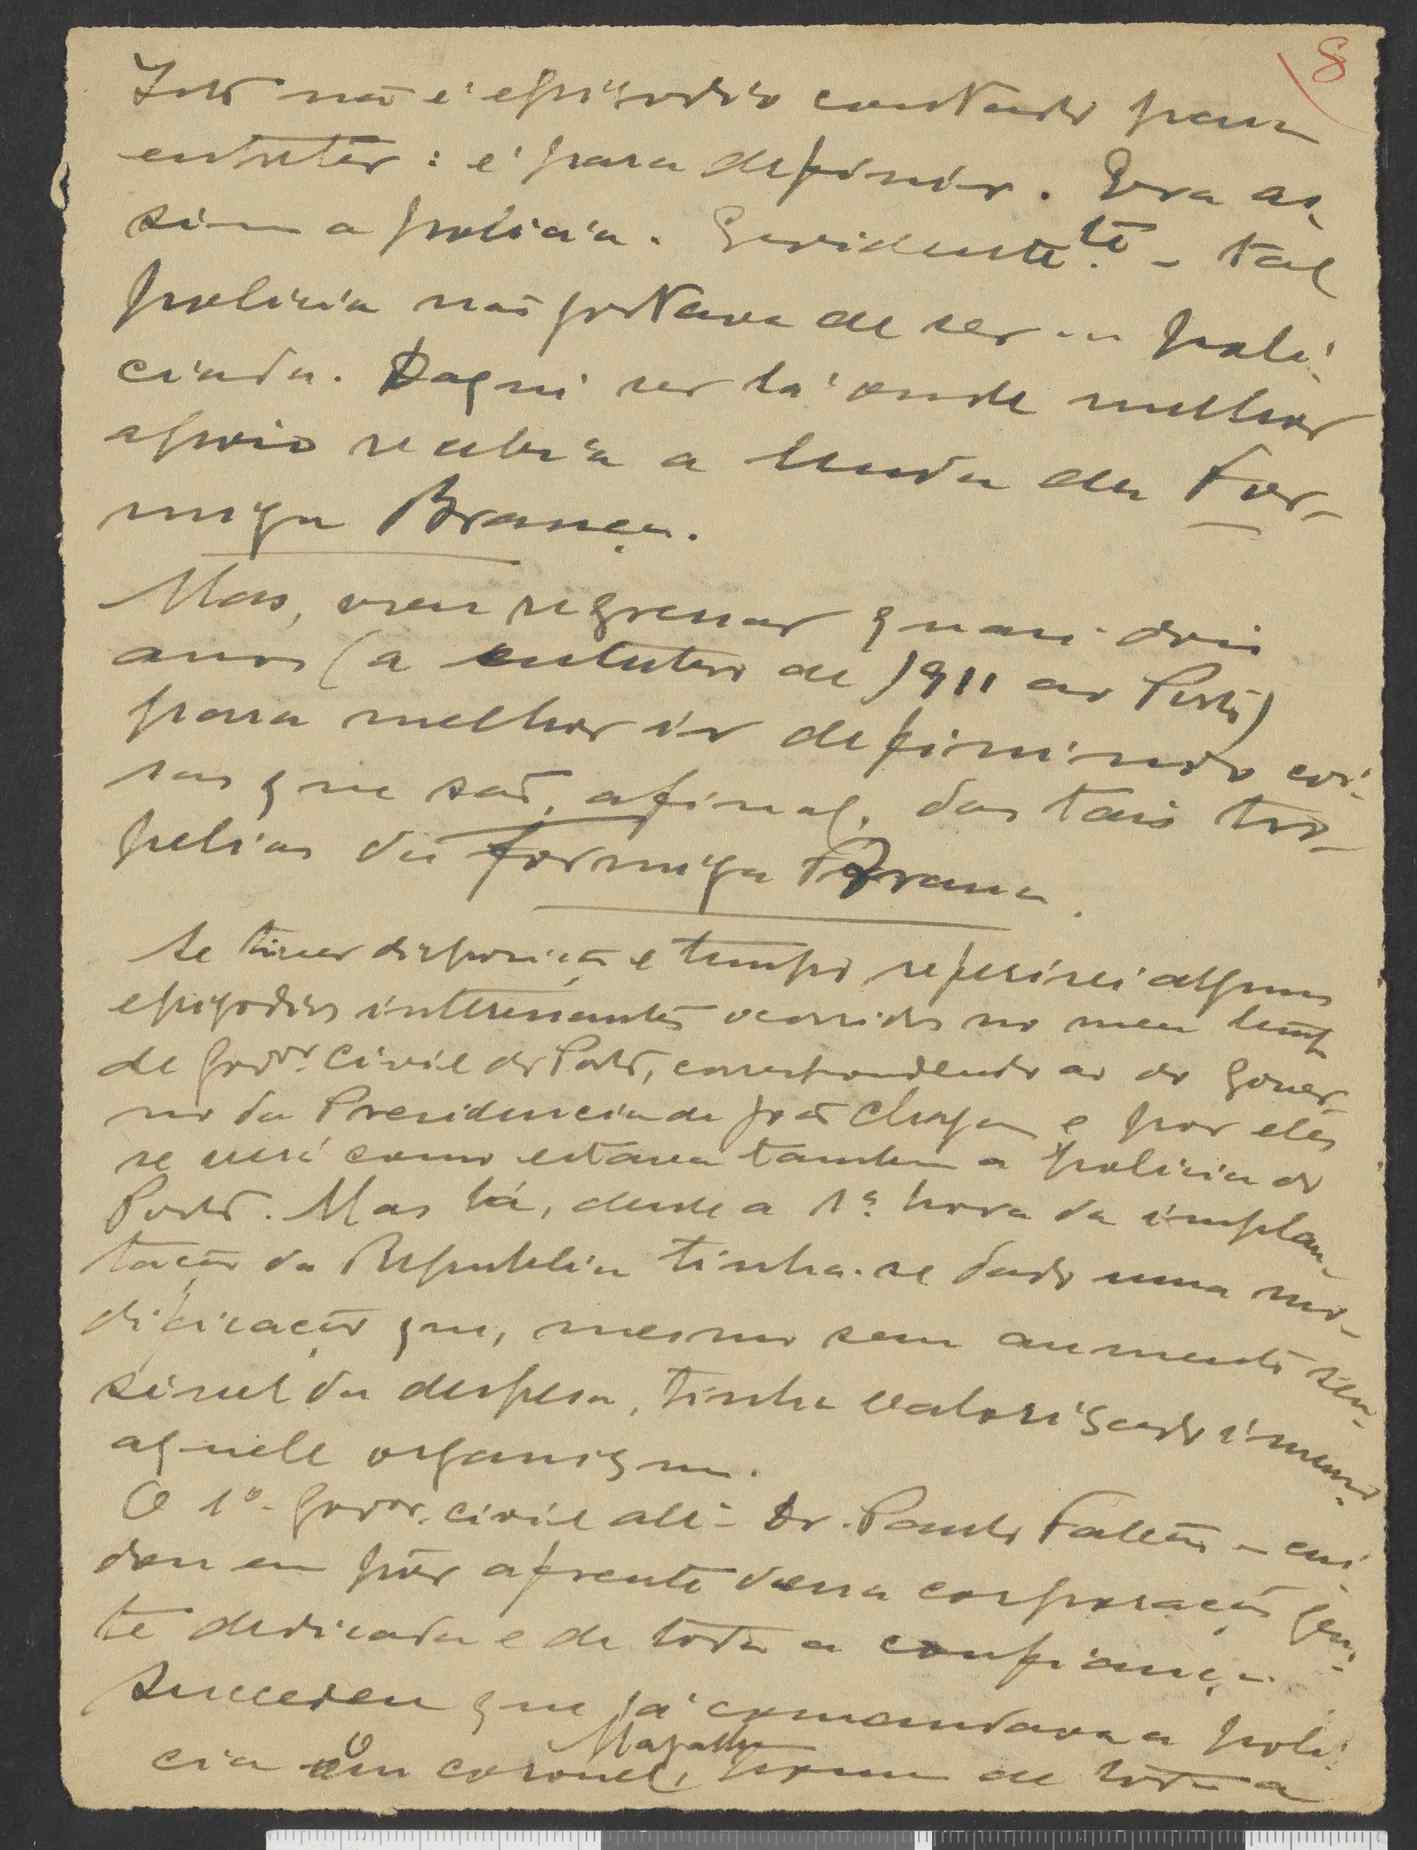 8
Isto não é episodio contado para
entreter: é para definir. Era as-
sim a policia. Evidente.te – tal
policia não gostava de ser – poli-
ciada. Daqui ser lá onde melhor
apoio recebia a lenda da For-
miga Branca.
Mas, vou regressar quasi dois
anos (a outubro de 1911 ao Porto)
para melhor ir definindo coi-
sas que são, afinal, das tais tro-
pelias da formiga Branca.
Se tiver disposição e tempo referirei alguns
episodios interessantes ocorridos no meu tempo
de Govor. Civil do Porto, correspondendo ao do Gover-
no da Presidencia de João Chagas e por eles
se verá como estava tambem a policia do
Porto. Mas lá, desde a 1ª hora da implan-
tação da Republica tinha-se dado uma mo-
dificação que, mesmo sem aumento sen-
sivel da despesa, tinha valorizado imenso
aquele organismo.
O 1º Govor. civil ali – Dr. Paulo Falcão – cui-
dou em pôr á frente dessa corporação gen-
te dedicada e de toda a confiança.
Sucedeu que já comandava a poli-
cia o coronel, Magalhães homem de toda a